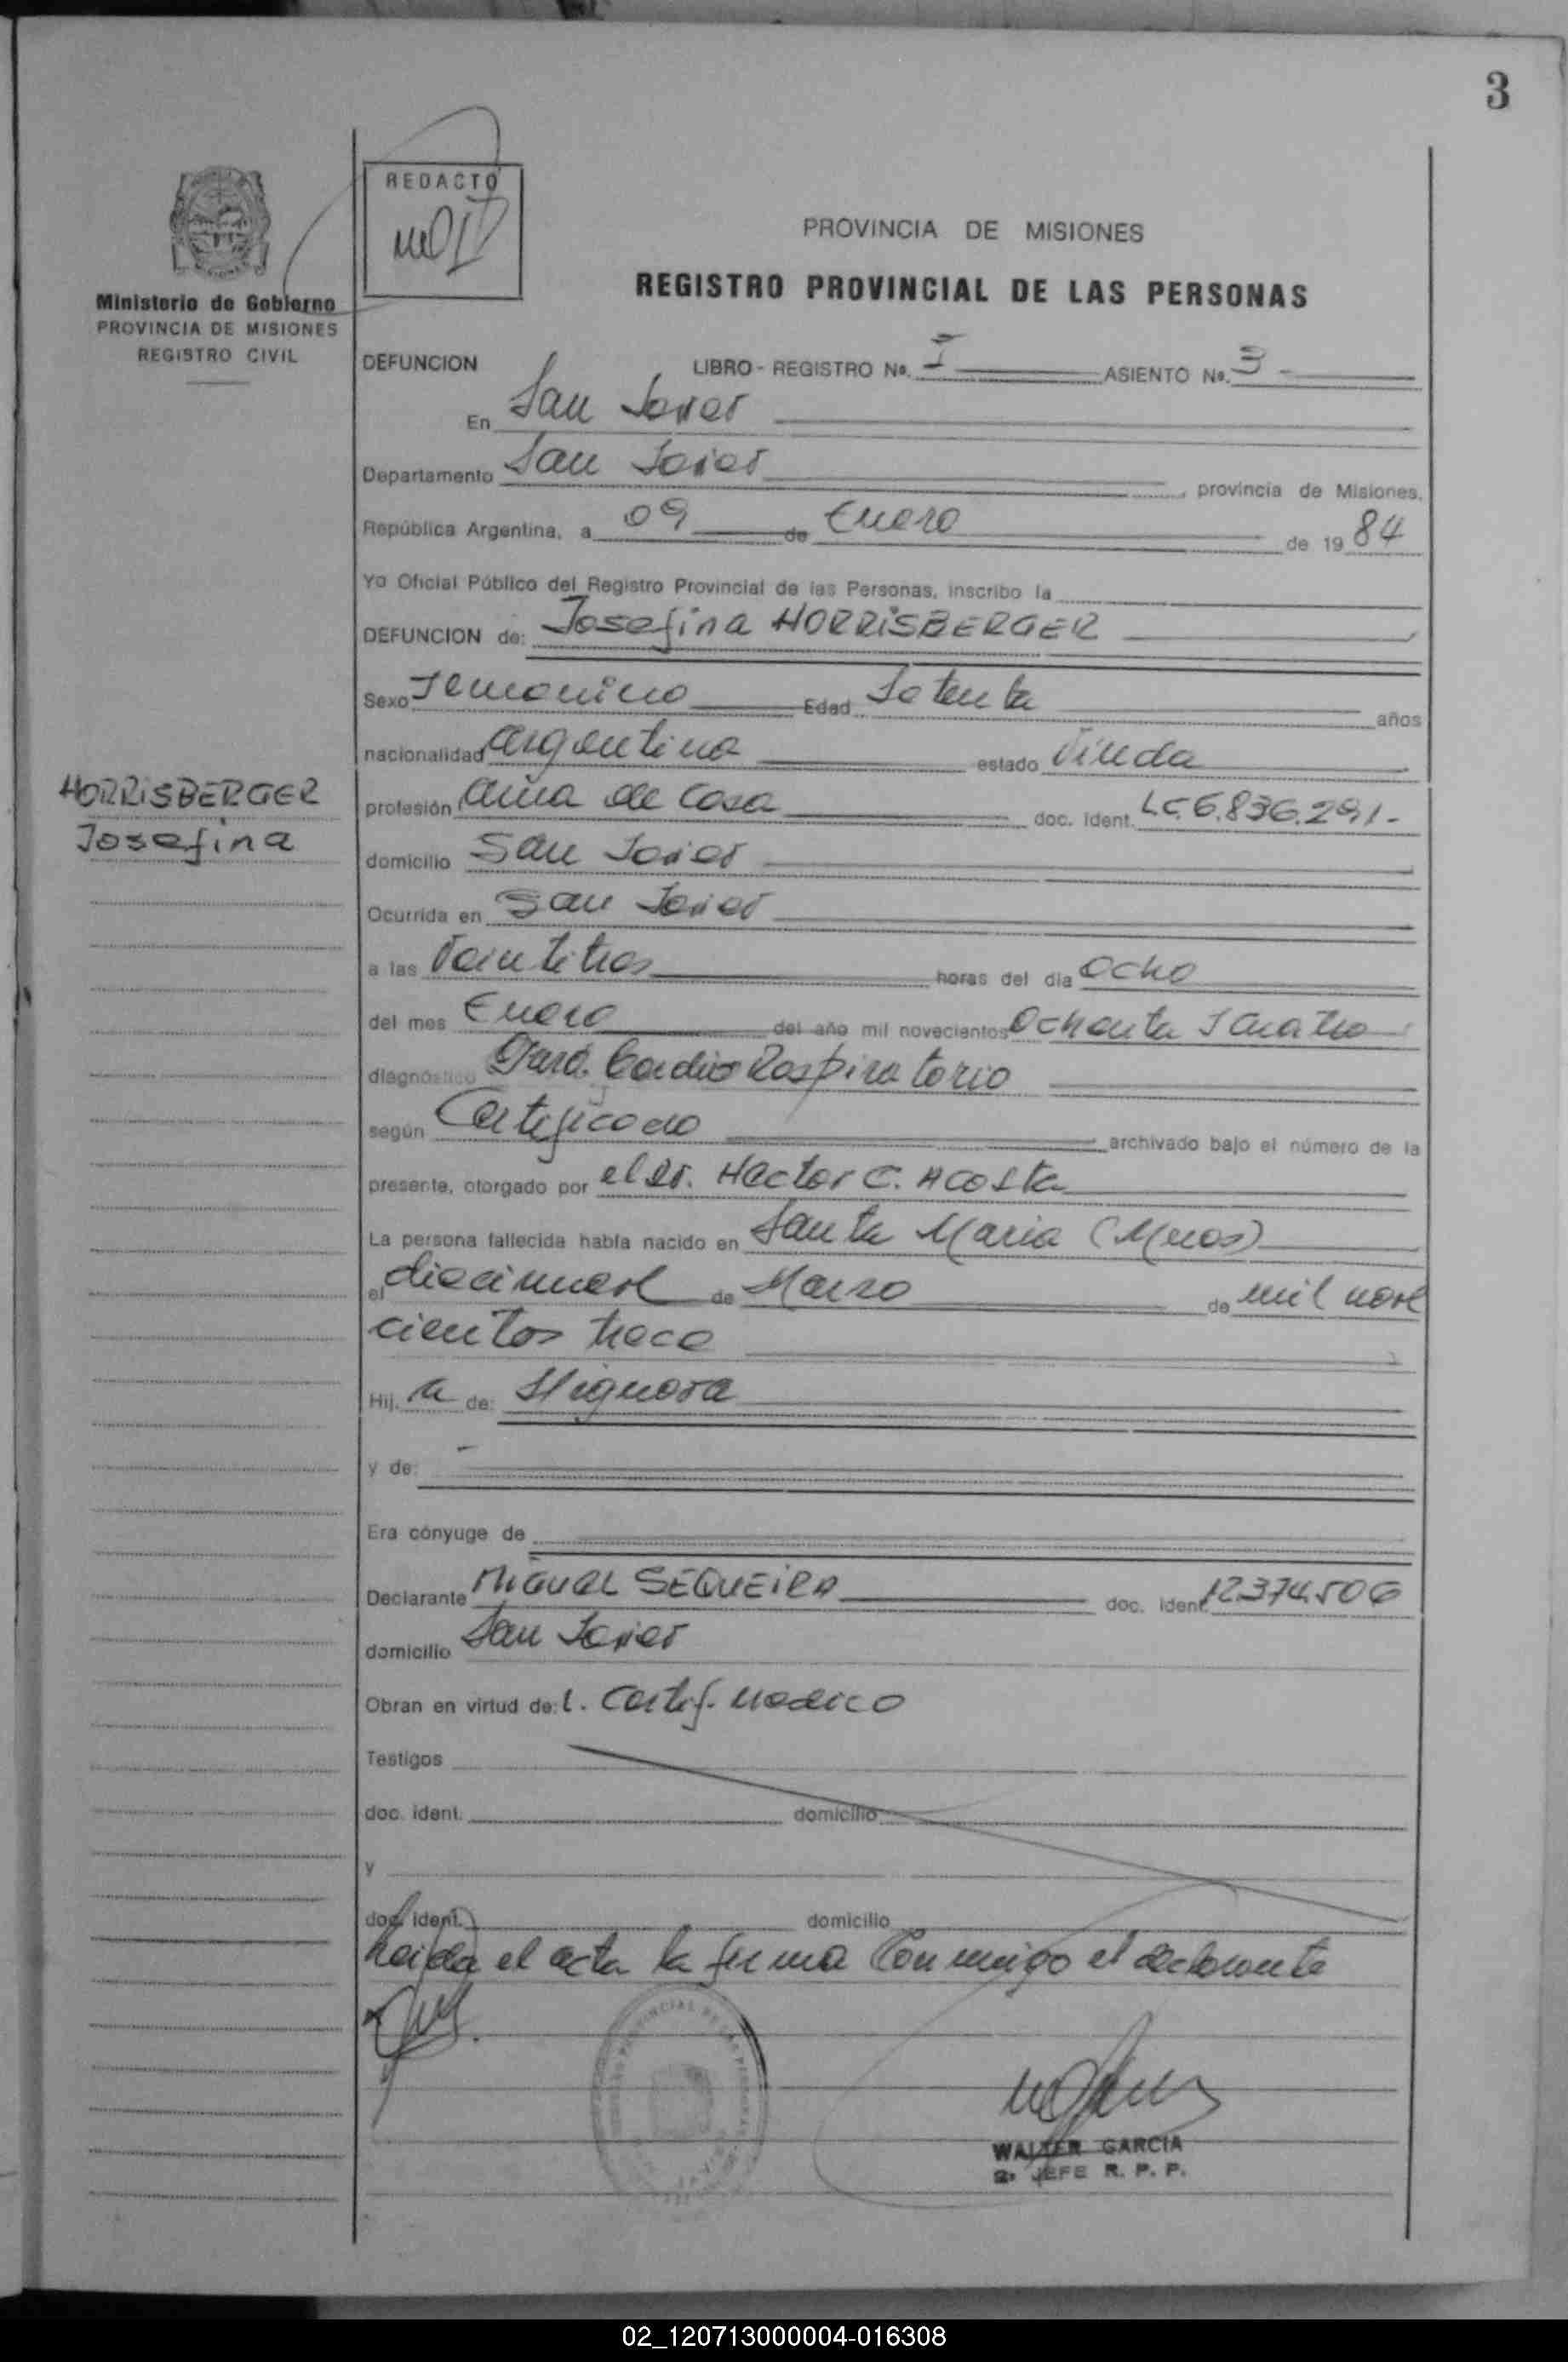 3
REDACTO
PROVINCIA DE MISIONES
REGISTRO PROVINCIAL DE LAS PERSONAS
Ministerio de Gobierno
PROVINCIA DE MISIONES
REGISTRO CIVIL
DEFUNCION LIBRO - REGISTRO No. I ASIENTO No. 3 -
En San Javier
Departamento San Javier, provincia de Misiones,
República Argentina, a 09 de Enero de 19 84
Yo Oficial Público del Registro Provincial de las Personas, inscribo la
DEFUNCION de: Josefina HORRISBERGER
Sexo Femenino Edad Setenta años
nacionalidad argentina estado Viuda
HORRISBERGER
Josefina
profesión ama de casa doc. ident. LC 6.836.291.-
domicilio San Javier
Ocurrida en San Javier
a las Veintitres horas del día ocho
del mes Enero del año mil novecientos Ochenta y cuatro
diagnóstico Paro Cardio Respiratorio
según Certificado archivado bajo el número de la
presente, otorgado por el Dr. Hector C. Acosta
La persona fallecida había nacido en Santa Maria (Mnes)
el diecinueve de Marzo de mil nove
cientos trece
Hij. a de: Se ignora
y de: -
Era cónyuge de
Declarante MIGUEL SEQUEIRA doc. ident. 12.374.506
domicilio San Javier
Obran en virtud de: l. Certif. medico
Testigos
doc. ident. domicilio
y
doc. ident. domicilio
Leida el acta la firma conmigo el declarante
WALTER GARCIA
2º JEFE R. P. P.
02_120713000004-016308